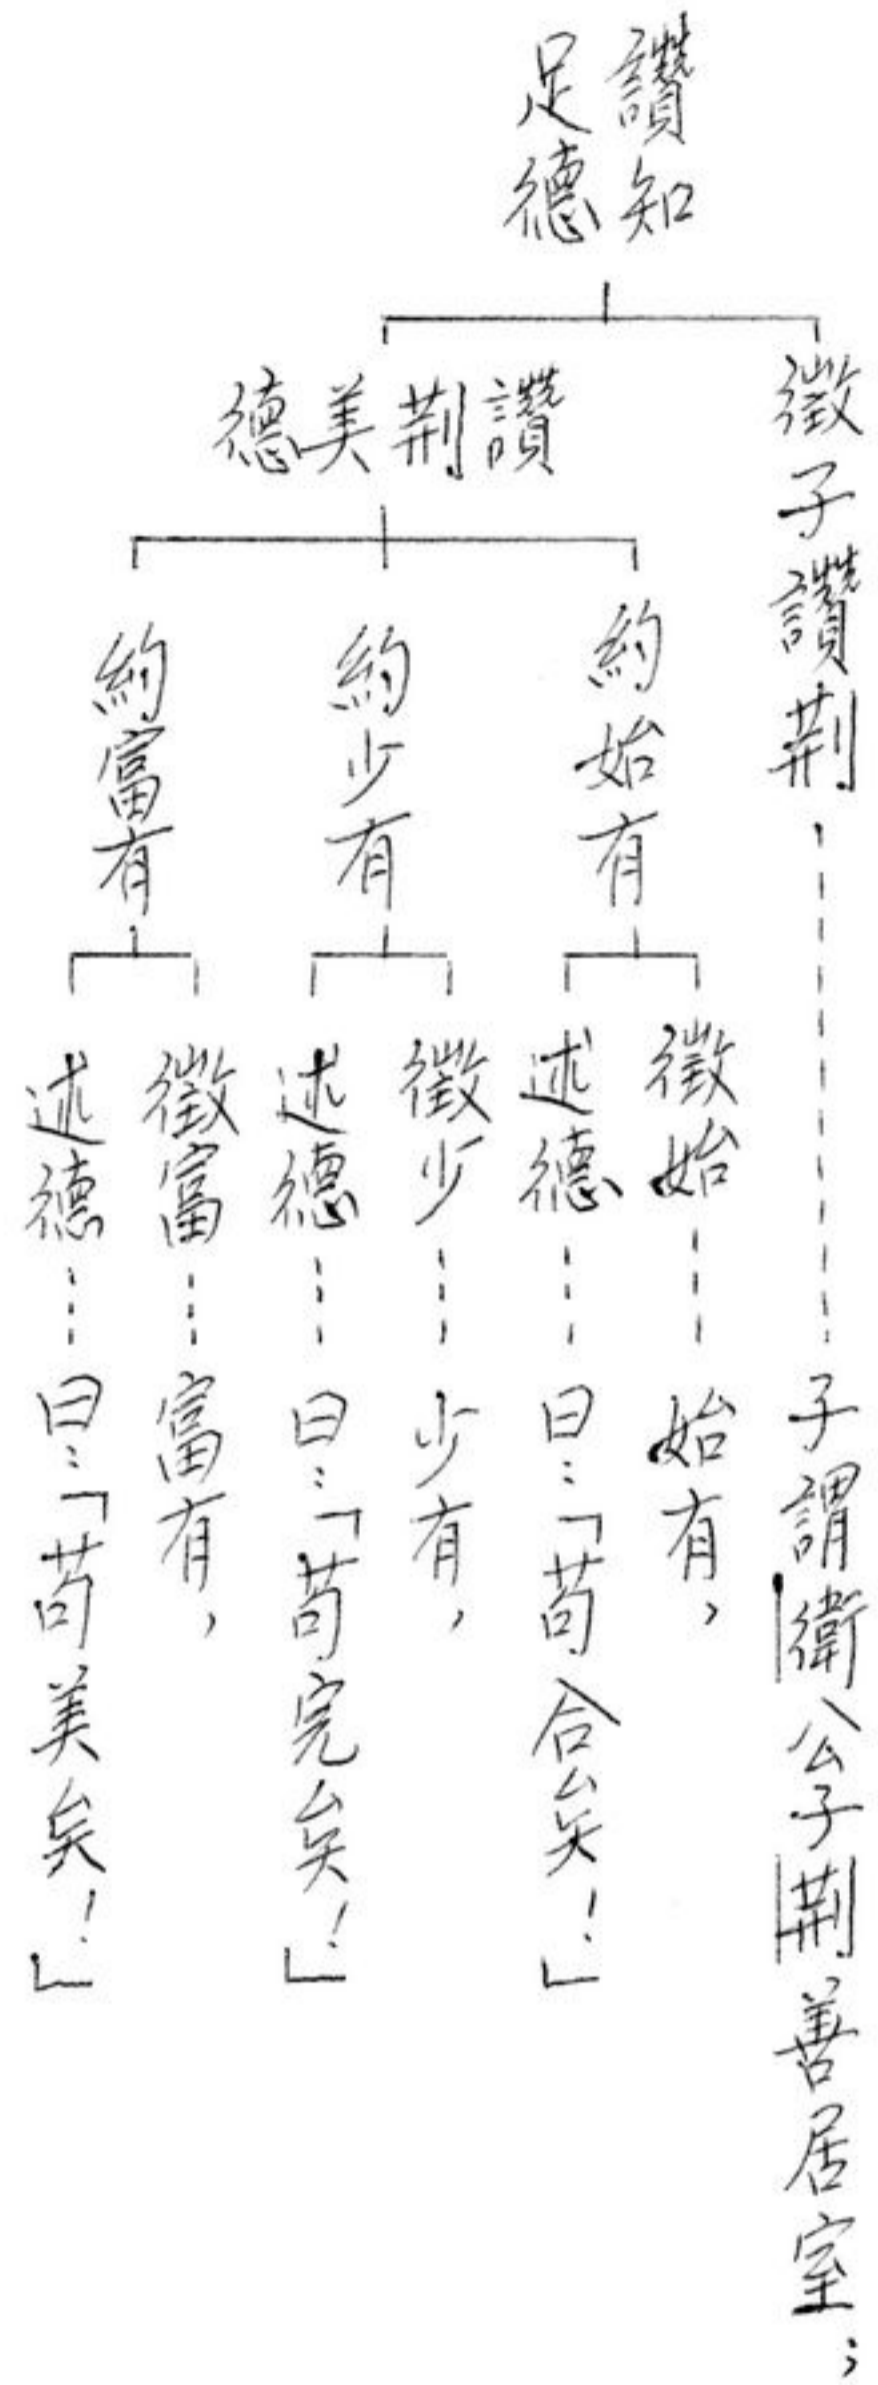 讚知
足德
徵子讚荆
子謂衛公子荆善居室；
讚荆美德
約始有
徵始
始有，
述德
曰：「苟合矣！」
約少有
徵少
少有，
述德
曰：「苟完矣！」
約富有
徵富
富有，
述德
曰：「苟美矣！」